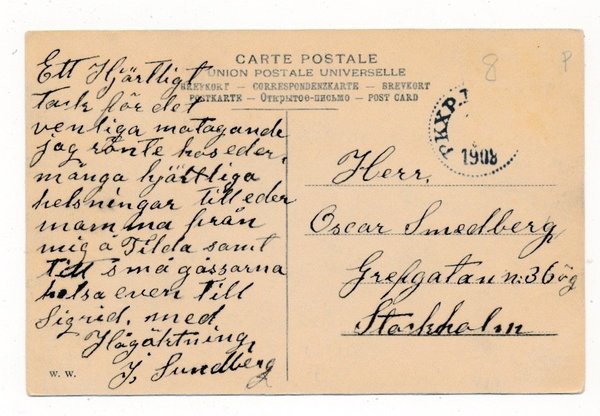 CARTE POSTALE
UNION POSTALE UNIVERSELLE
BREVKORT – CORRESPONDENZKARTE – BREVKORT
POSTKARTE – Открытое-письмо – POST CARD
Ett Hjärtligt
tack för det
venliga motagande
jag rönte hos eder,
många hjärtliga
helsningar till eder
mamma från
mig å Tilda samt
till små gåssarna
helsa even till
Sigrid, med
Högaktning
J, Sundberg
W. W.
8
P
PKXP
1908
Herr,
Oscar Smedberg
Grefgatan n:36 ög
Stockholm